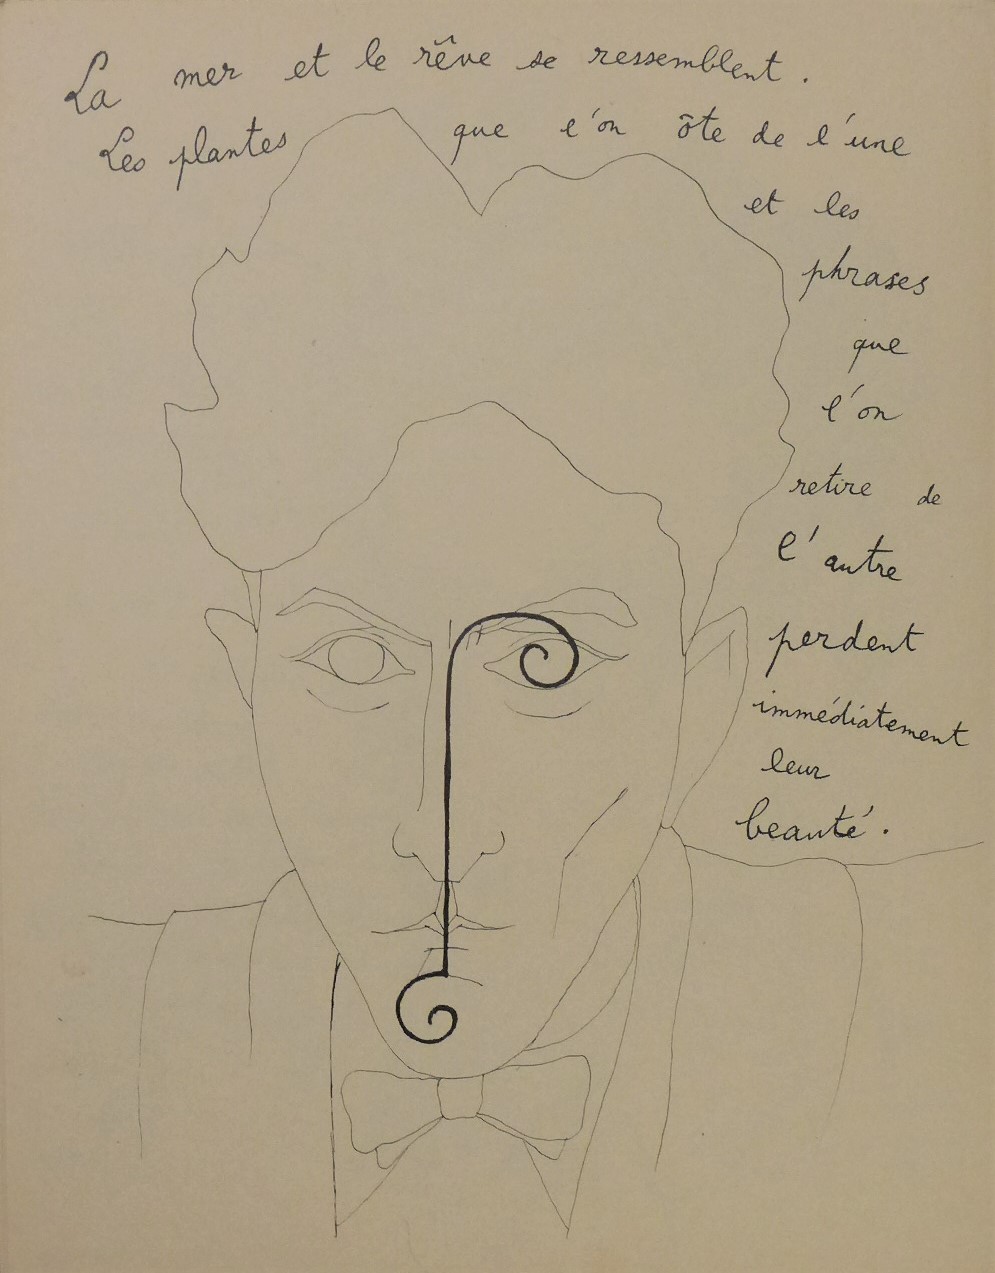 La mer et le rêve se ressemblent.
Les plantes que l'on ôte de l'une
et les
phrases
que
l'on
retire de
l'autre
perdent
immédiatement
leur
beauté.